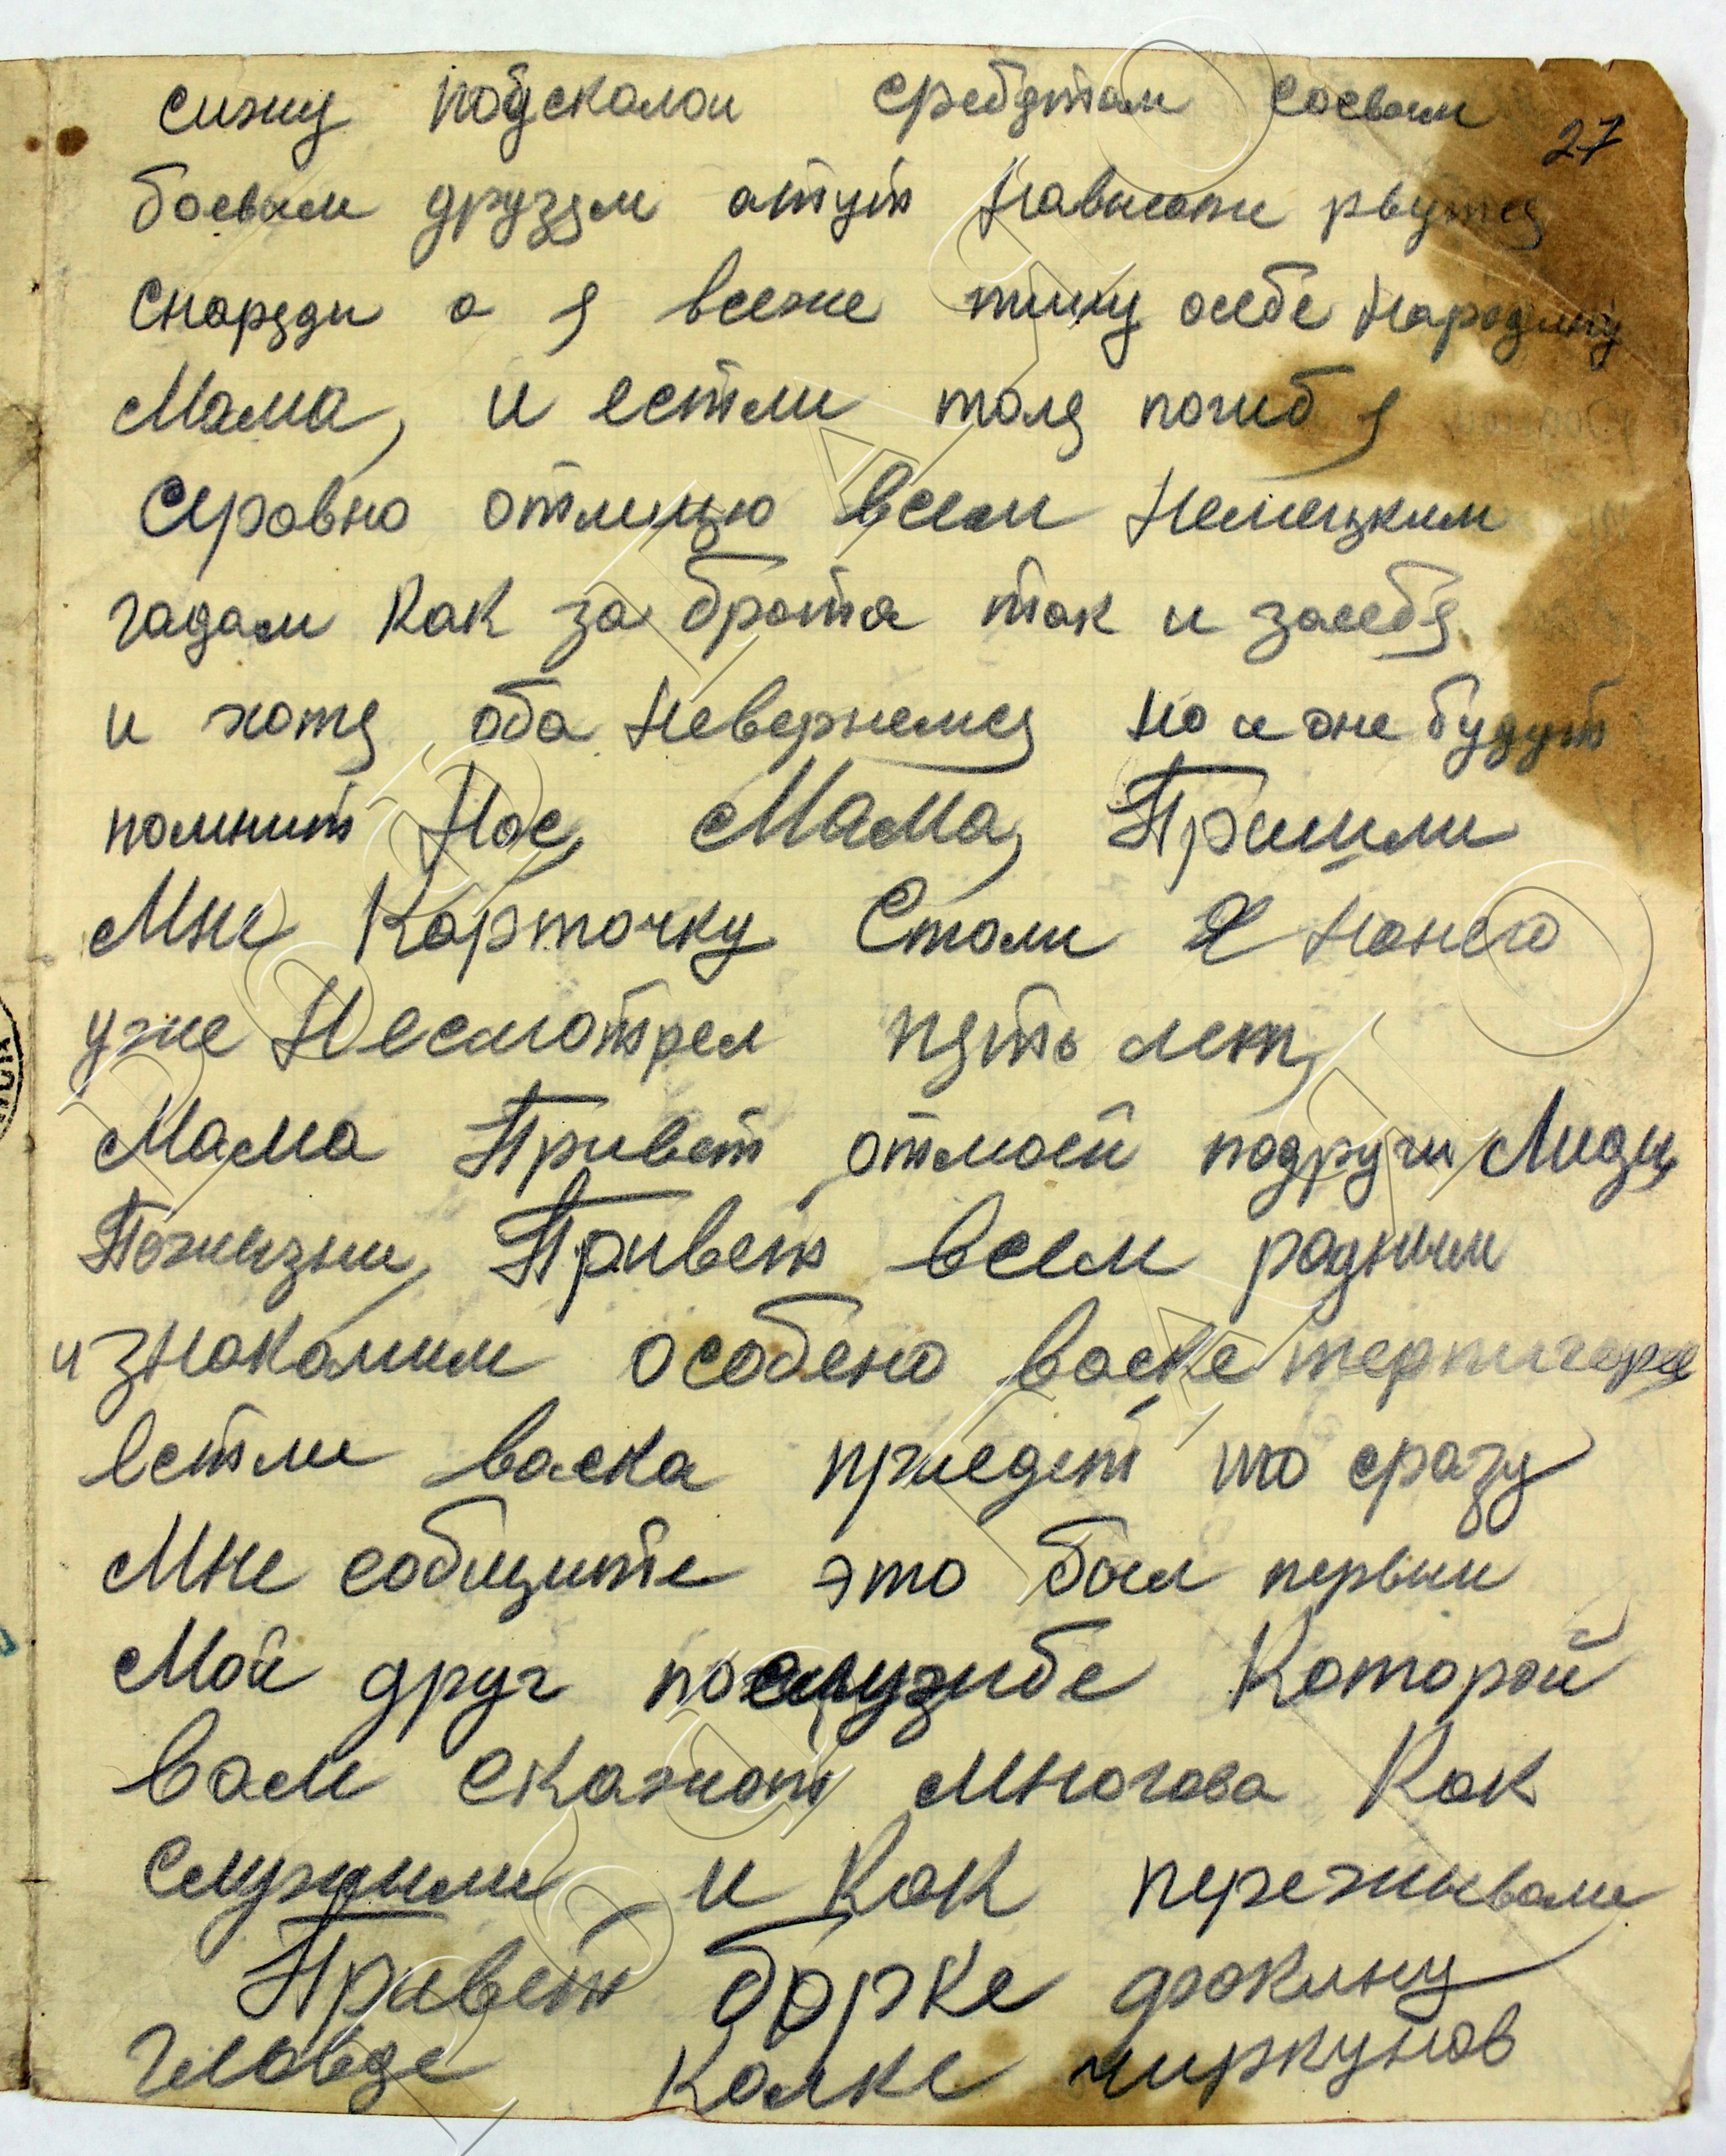 сижу подскалои средтам соевоим
27
боевым друзям атут Навысоте рвутся
снаряды а я всеже пишу осебе Народину
Мама, и естли толя погиб я
сировно отмщю всем Немецким
гадам Как за брата так и засебя
и хотя оба Невернемся но и оне будут
помнит Нас, Мама, Пришли
Мне Карточку Столи Я Нанего
уже Несмотрел пять лет,
Мама Привет отмоей подруги Лиды
Пожизни, Привет всем родным
и знакомым особено васке терпигоре
естли васка приедет то сразу
Мне собщите это был первыи
Мой друг послузибе Которой
вам скажот многова Как
служили и Как переживали
Привет борке фокину
Колке чиркунов